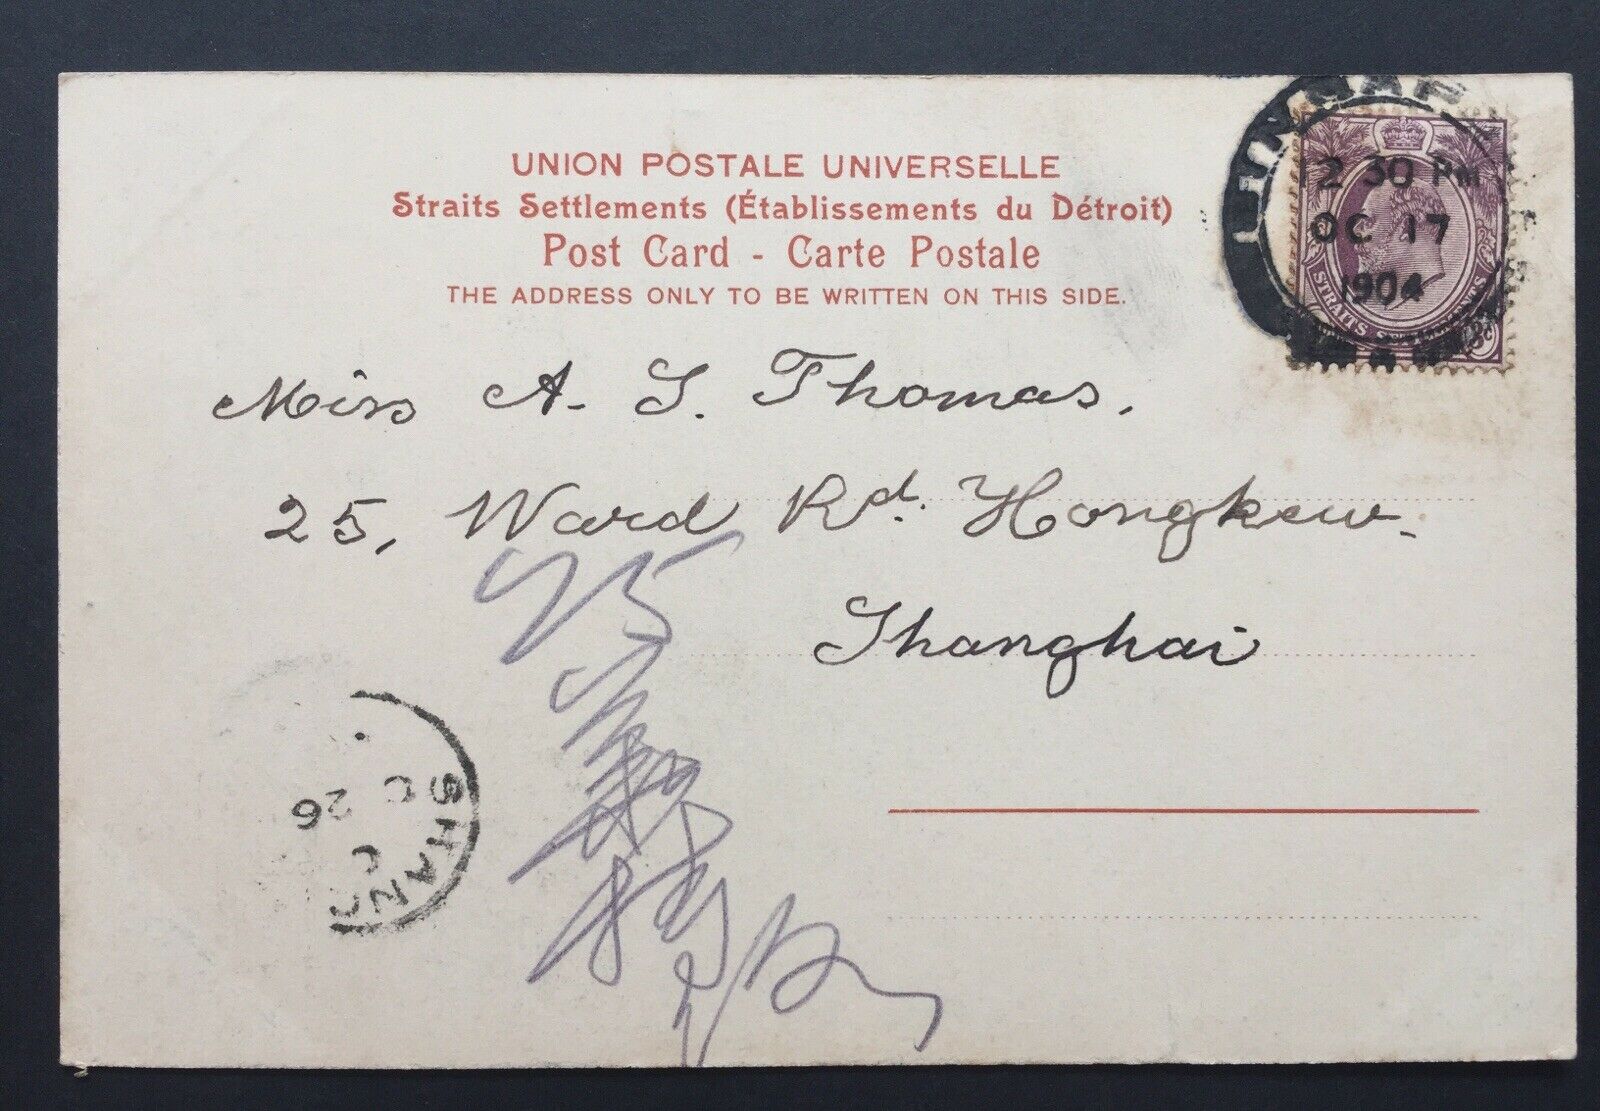 UNION POSTALE UNIVERSELLE
Straits Settlements (Établissements du Détroit)
Post Card - Carte Postale
THE ADDRESS ONLY TO BE WRITTEN ON THIS SIDE.
2 30 PM
OC 17
1904
STRAITS
Miss A. S. Thomas.
25, Ward Rd. Hongkew.
Shanghai
25
SHANG
26